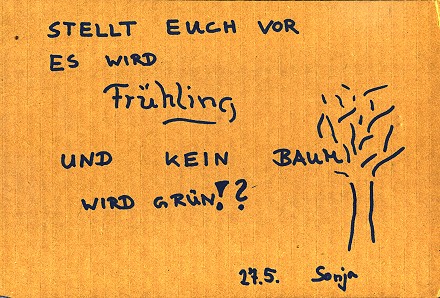 STELLT EUCH VOR
ES WIRD
Frühling
UND KEIN BAUM
WIRD GRÜN!?
27.5. Sonja